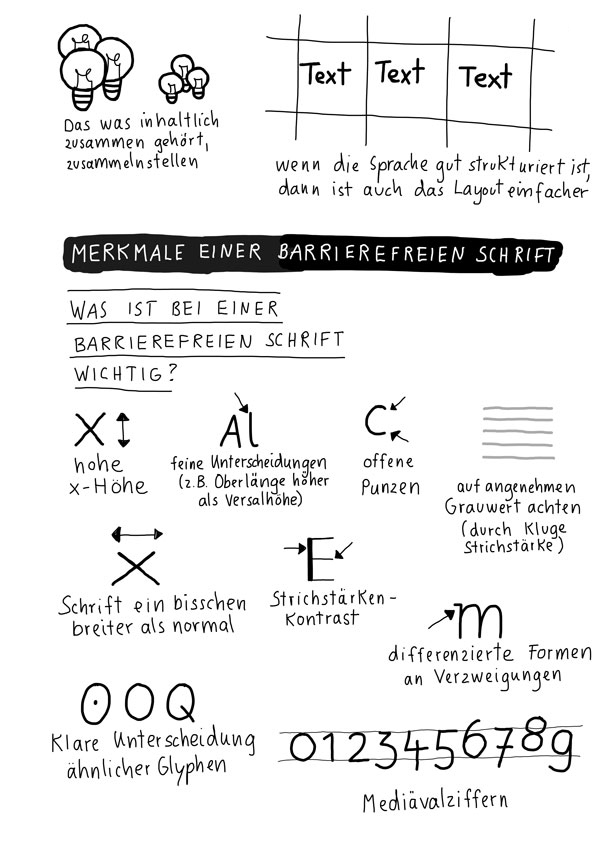 Das was inhaltlich
zusammen gehört,
zusammelnstellen
Text Text Text
wenn die Sprache gut strukturiert ist,
dann ist auch das Layout einfacher
MERKMALE EINER BARRIEREFREIEN SCHRIFT
WAS IST BEI EINER
BARRIEREFREIEN SCHRIFT
WICHTIG?
X
hohe
x-Höhe
Al
feine Unterscheidungen
(z.B. Oberlänge höher
als Versalhöhe)
C
offene
Punzen
auf angenehmen
Grauwert achten
(durch Kluge
Strichstärke)
X
Schrift ein bisschen
breiter als normal
E
Strichstärken-
Kontrast
m
differenzierte Formen
an Verzweigungen
O O Q
Klare Unterscheidung
ähnlicher Glyphen
0123456789
Mediävalziffern